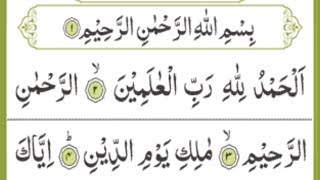 بِسْمِ اللهِ الرَّحْمٰنِ الرَّحِيْمِ ۝١
اَلْحَمْدُ لِلّٰهِ رَبِّ الْعٰلَمِيْنَ ۙ۝٢ الرَّحْمٰنِ
الرَّحِيْمِ ۙ۝٣ مٰلِكِ يَوْمِ الدِّيْنِ ؕ۝٤ اِيَّاكَ